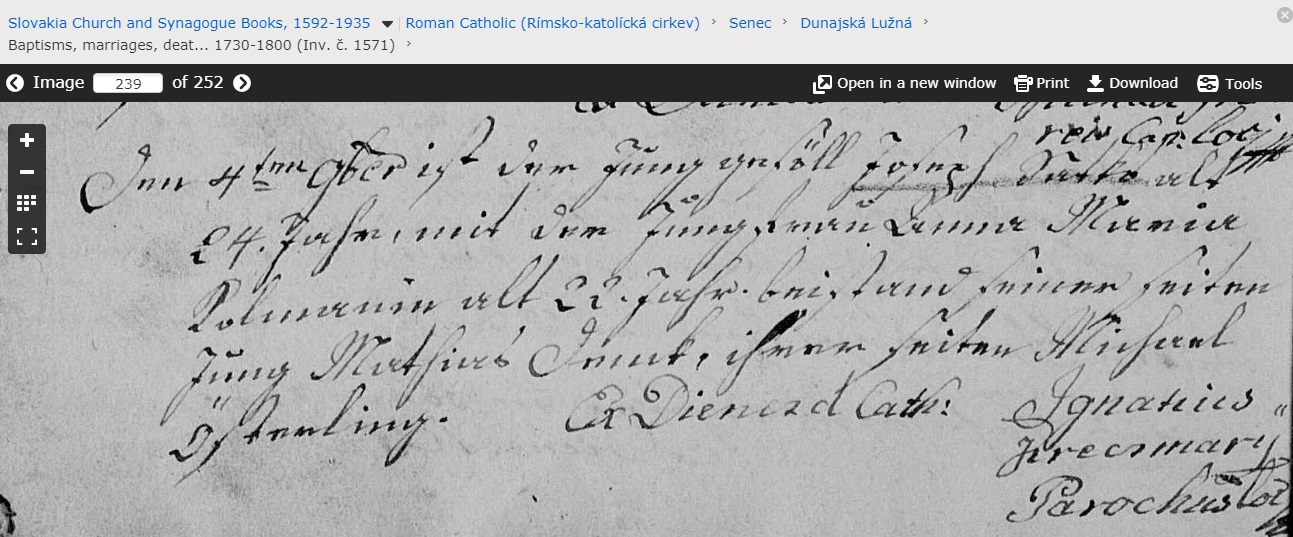 Slovakia Church and Synagogue Books, 1592-1935 Roman Catholic (Rímsko-katolícká cirkev) › Senec › Dunajská Lužná ›
Baptisms, marriages, deat... 1730-1800 (Inv. č. 1571) ›
Image 239 of 252 Open in a new window Print Download Tools
Den 4ten 9ber ist der Jung gesöll Joseph alt
24. Jahr, mit der Jungfrau Anna Maria
Kolmanin alt 22. Jahr. beistand seiner seiten
Jung Mathias Denk, ihrer seiten Michael
Österling. Ex Dienersd Cath: Ignatius
Krecsmary
Parochus